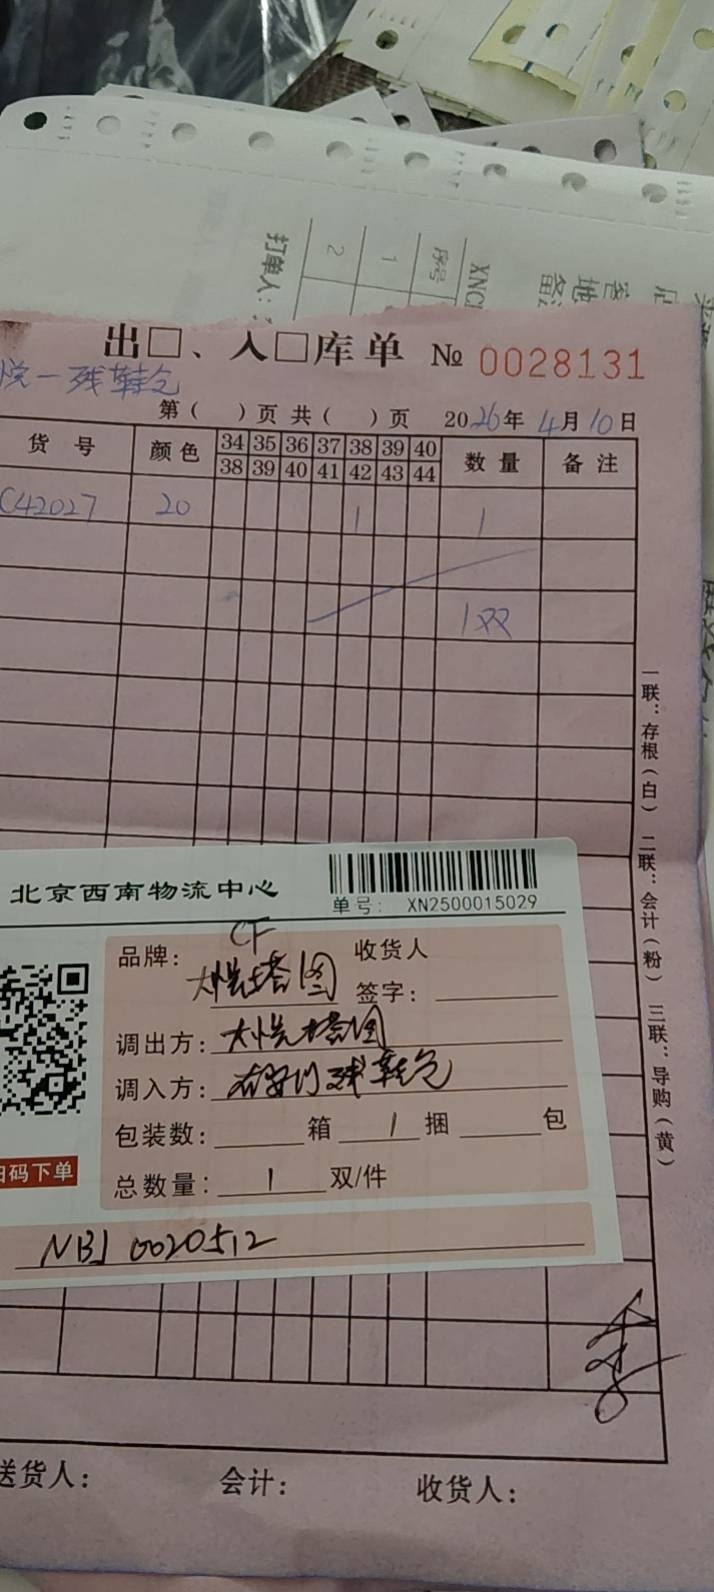 打单人：
2
1
序号
出□、入□库单 № 0028131
悦一残鞋仓
第（ ）页 共（ ）页 2026年4月10日
货号 颜色 34 35 36 37 38 39 40 数量 备注
38 39 40 41 42 43 44
C42027 20 1 1
1双
一联：存根（白） 二联：会计（粉） 三联：导购（黄）
北京西南物流中心
单号: XN2500015029
CF
品牌: 大悦塔图 收货人
签字:
调出方: 大悦塔图
调入方: 右安门残鞋仓
包装数: 箱 1 捆 包
总数量: 1 双/件
扫码下单
NBJ 0020512
李
送货人： 会计： 收货人：